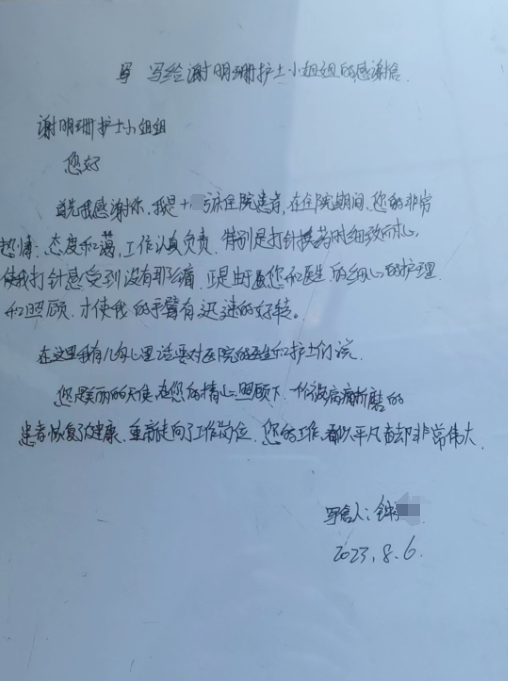 写 写给谢明珊护士小姐姐的感谢信
谢明珊护士小姐姐
您好
首先我感谢你,我是十 号床住院患者,在住院期间,您的非常
热情,态度和蔼,工作认真负责,特别是打针换药时细致耐心,
使我打针感受到没有那么痛,正是由于您和医生的细心的护理
和照顾,才使我的手臂有迅速的好转。
在这里我有几句心里话要对医院的医生和护士们说
您是美丽的天使,在您的精心照顾下,一个个被病痛折磨的
患者恢复了健康,重新走向了工作岗位,您的工作,看似平凡却非常伟大
写信人:钟
2023.8.6.